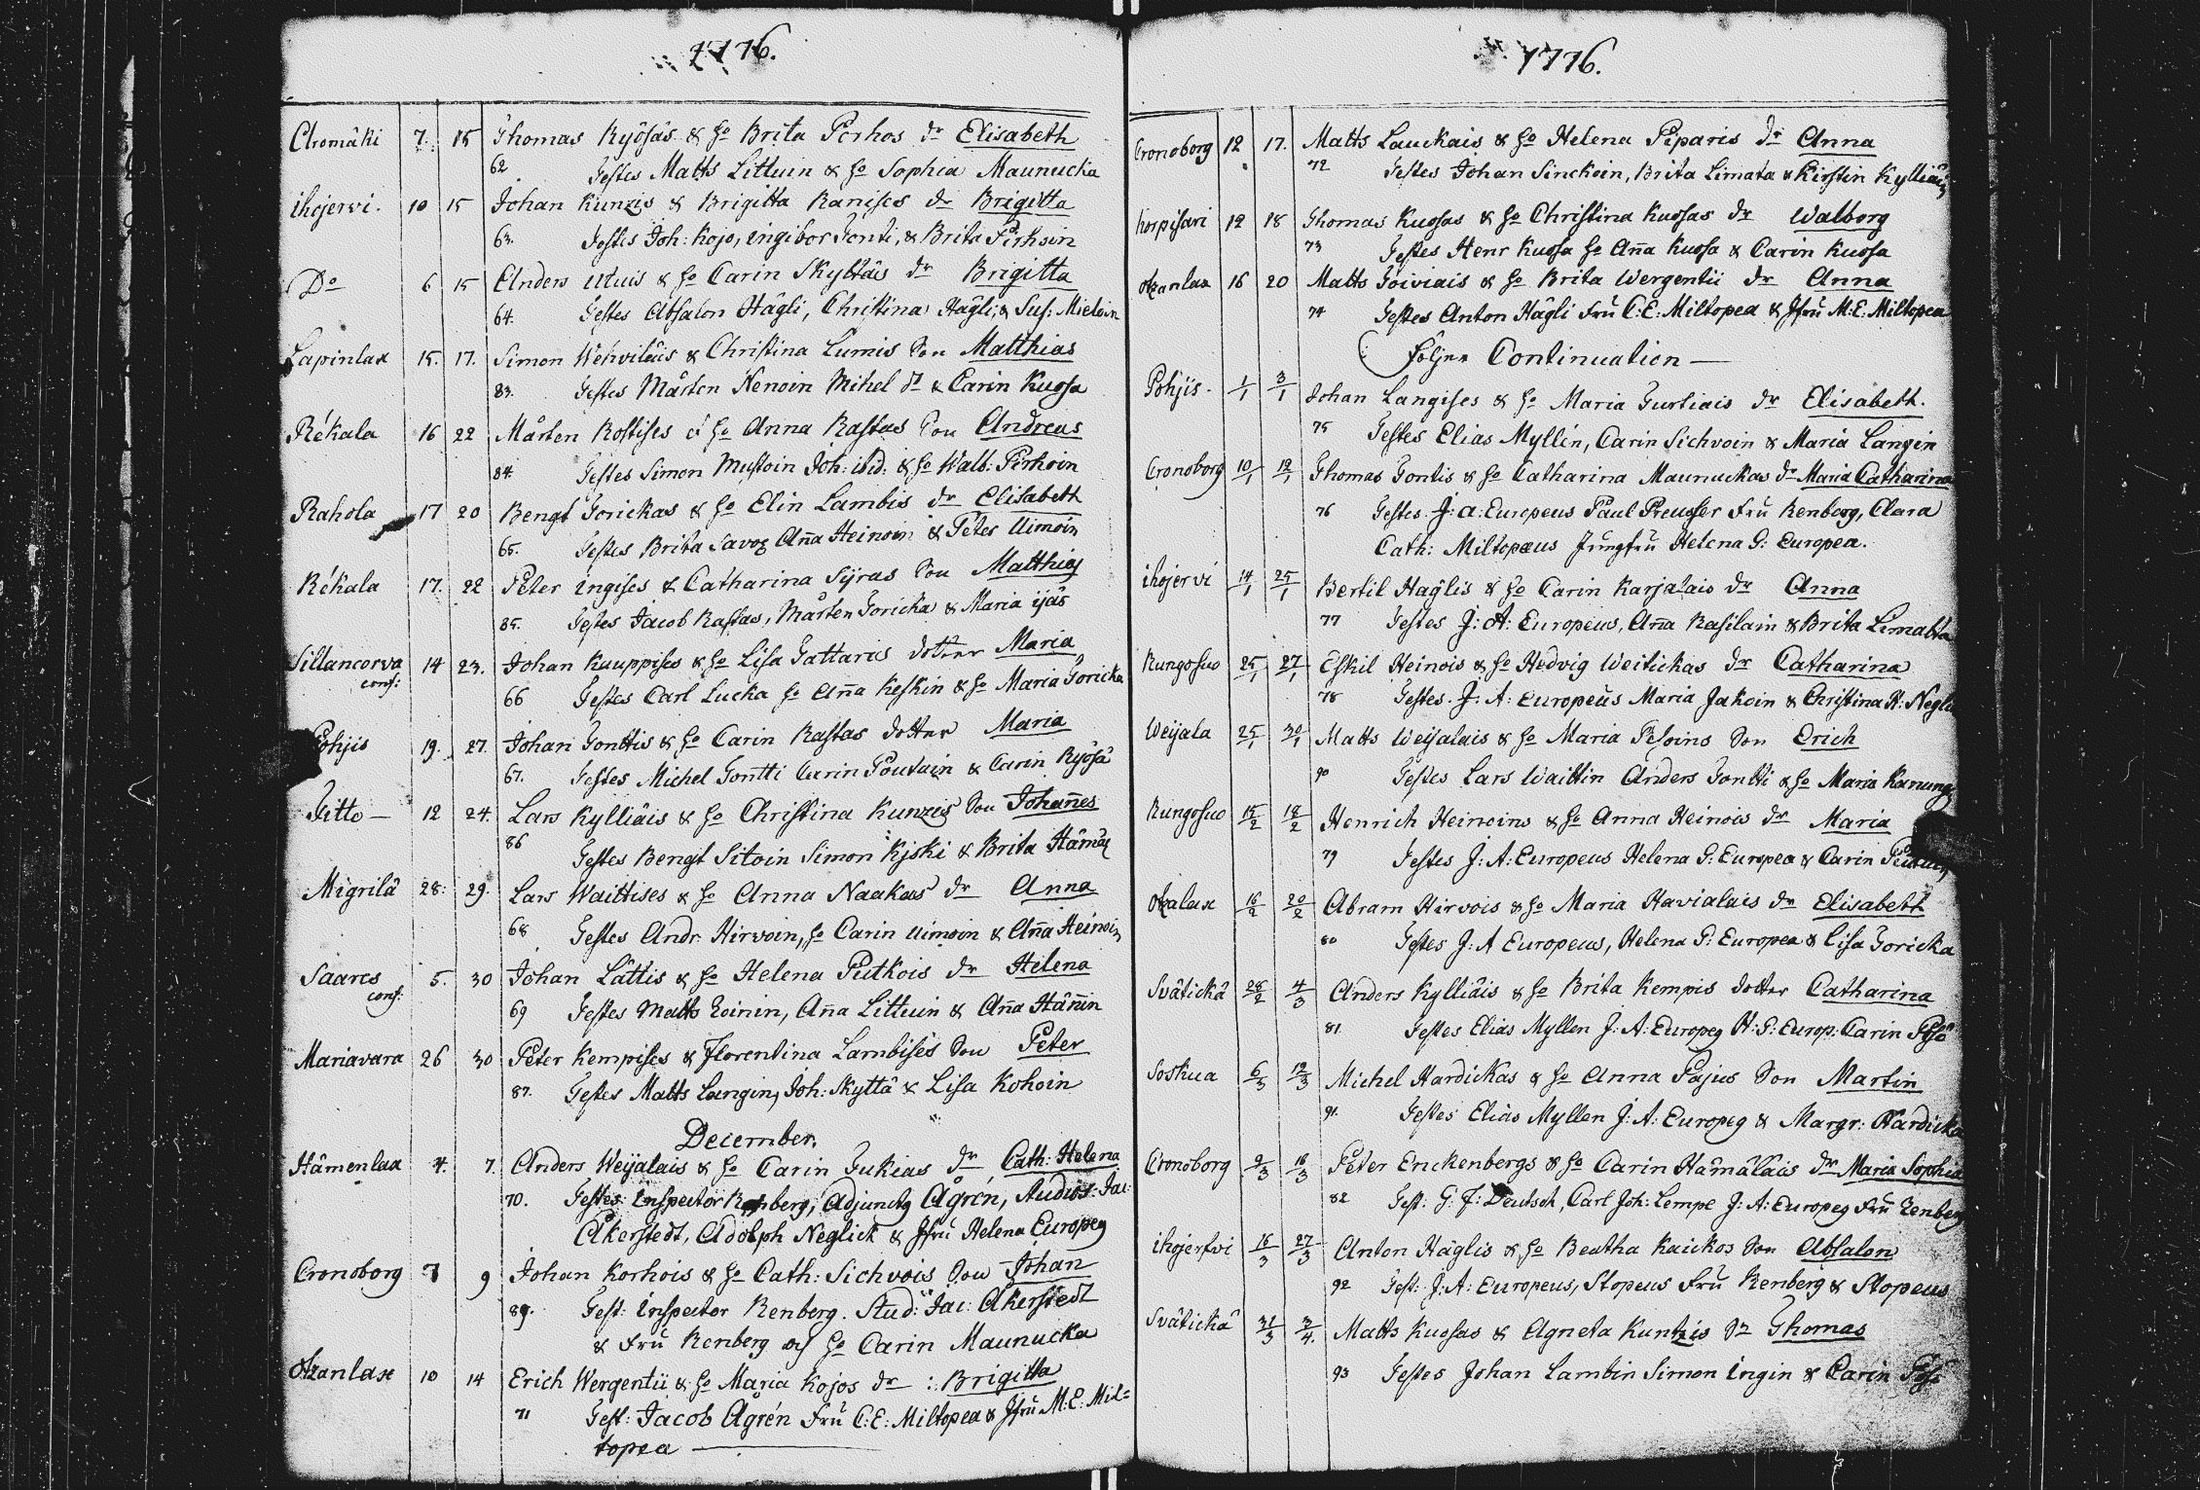 1776.
Aromäki 7. 15 Thomas Kyösäs & ho Brita Porhos dr Elisabeth
62 Testes Matts Littuin & ho Sophia Maunucka
ihojervi. 10 15 Johan Kunzis & Brigitta Ranises dr Brigitta
63. Testes Joh: Kojo, ingibor Tonti, & Brita Pirhoin
Do 6 15 Anders Utuis & ho Carin Skyttäs dr Brigitta
64. Testes Absalon Hägli, Christina Hägli, & Sus: Mieloin
Lapinlax 15. 17. Simon Wehviläis & Christina Lumis Son Matthias
83. Testes Mårten Nenoin Mihel dt & Carin Kuosa
Rékala 16 22 Mårten Rostises & ho Anna Rastas Son Andreas
84. Testes Simon Mustoin Joh: ibid: & ho Walb: Pirhoin
Rahola 17 20 Bengt Torickas & ho Elin Lambis dr Elisabeth
65. Testes Brita Savog Aña Heinoin & Peter Uimoin
Rékala 17. 22 Peter ingises & Catharina Syras Son Matthias
85. Testes Jacob Rastas, Mårten Toricka & Maria ijäs
Sillancorva 14 23. Johan Kauppises & ho Lisa Tattaris dotter Maria
conf: 66 Testes Carl Lucka ho Aña Keskin & ho Maria Toricka
Pohjis 19. 27. Johan Tonttis & ho Carin Rastas dotter Maria
67. Testes Michel Tontti Carin Poutain & Carin Kyösä
Titto — 12 24. Lars Kylliäis & ho Christina Kunzis Son Johañes
86 Testes Bengt Sitoin Simon Kjski & Brita Hämäl
Migrilä 28. 29. Lars Waittises & ho Anna Naakas dr Anna
68 Testes Andr. Hirvoin, ho Carin Uimoin & Aña Heinoin
Saares 5. 30 Johan Lättis & ho Helena Putkois dr Helena
conf: 69 Testes Matts Toinin, Aña Littuin & Aña Häñin
Mariavara 26 30 Peter Kempises & Florentina Lambises Son Peter
87. Testes Matts Langin, Joh: Skyttä & Lisa Kohoin
December.
Hämenlax 4. 7. Anders Weijalais & ho Carin Jukias dr Cath: Helena
70. Testes: Inspector Renberg, Adjunctg Ågrén, Studios: Jac:
Åkerstedt, Adolph Neglick & Jfru Helena Europeg
Cronoborg 7 9 Johan Korhois & ho Cath: Sichvois Son Johan
89. Test: Inspector Renberg. Stud: Jac: Åkerstedt
& Fru Renberg och ho Carin Maunucka
Otzanlax 10 14 Erich Wergentii & ho Maria Kojos dr : Brigitta
71 Test: Jacob Ågrén Fru C: E: Miltopea & Jfru M: E: Mil=
topea
1776.
Cronoborg 12 17. Matts Lauckais & ho Helena Piparis dr Anna
72 Testes Johan Sinckoin, Brita Limata & Kirstin Kylliäin
Korpisari 12 18 Thomas Kuosas & ho Christina Kuosas dr Walborg
73 Testes Henr Kuosa ho Aña Kuosa & Carin Kuosa
Otzanlax 16 20 Matts Toiviais & ho Brita Wergentii dr Anna
74 Testes Anton Hägli Fru C: E: Miltopea & Jfru M: E: Miltopea
följer Continuation —
Pohjis. 1/1 3/1 Johan Langises & ho Maria Turtiais dr Elisabeth.
75 Testes Elias Myllin, Carin Sichvoin & Maria Langin
Cronoborg 10/1 12/1 Thomas Tontis & ho Catharina Maunuckas dr Maria Catharina
76 Testes J: A: Europeus Paul Preusser Fru Renberg, Clara
Cath: Miltopæus Jungfru Helena G: Europea.
ihojervi 14/1 25/1 Bertil Haglis & ho Carin Karjalais dr Anna
77 Testes J: A: Europeus, Aña Rasilain & Brita Limatta
Kungosuo 25/1 27/1 Eskil Heinois & ho Hedvig Weitickas dr Catharina
78 Testes J: A: Europeus Maria Jakoin & Christina H: Neglick
Weijala 25/1 30/1 Matts Weijalais & ho Maria Pesoins Son Erich
90 Testes Lars Waittin Anders Tontti & ho Maria Kanunga
Kungosuo 15/2 18/2 Henrich Heinoins & ho Anna Heinois dr Maria
79 Testes J: A: Europeus Helena G: Europea & Carin
Otzalax 16/2 20/2 Abram Hirvois & ho Maria Havialais dr Elisabeth
80 Testes J: A Europeus, Helena G: Europea & Lisa Toricka
Svätickä 28/2 4/3 Anders Kylliäis & ho Brita Kempis dotter Catharina
81 Testes Elias Myllen J: A: Europeg H: G: Europ: Carin
Soskua 6/3 12/3 Michel Hardickas & ho Anna Pajus Son Martin
91. Testes Elias Myllen J: A: Europeg & Margr: Hardicka
Cronoborg 9/3 16/3 Peter Enckenbergs & ho Carin Hämäläis dr Maria Sophia
82 Test: G: F: Deutsch, Carl Joh: Lempe J: A: Europeg Fru Renberg
ihojerfvi 16/3 27/3 Anton Häglis & ho Beatha Kaickos Son Absalon
92 Test: J: A: Europeus, Stopeus Fru Renberg & Stopeus
Svätickä 31/3 3/4. Matts Kuosas & Agneta Kuntzis Sn Thomas
93 Testes Johan Lambin Simon ingin & Carin